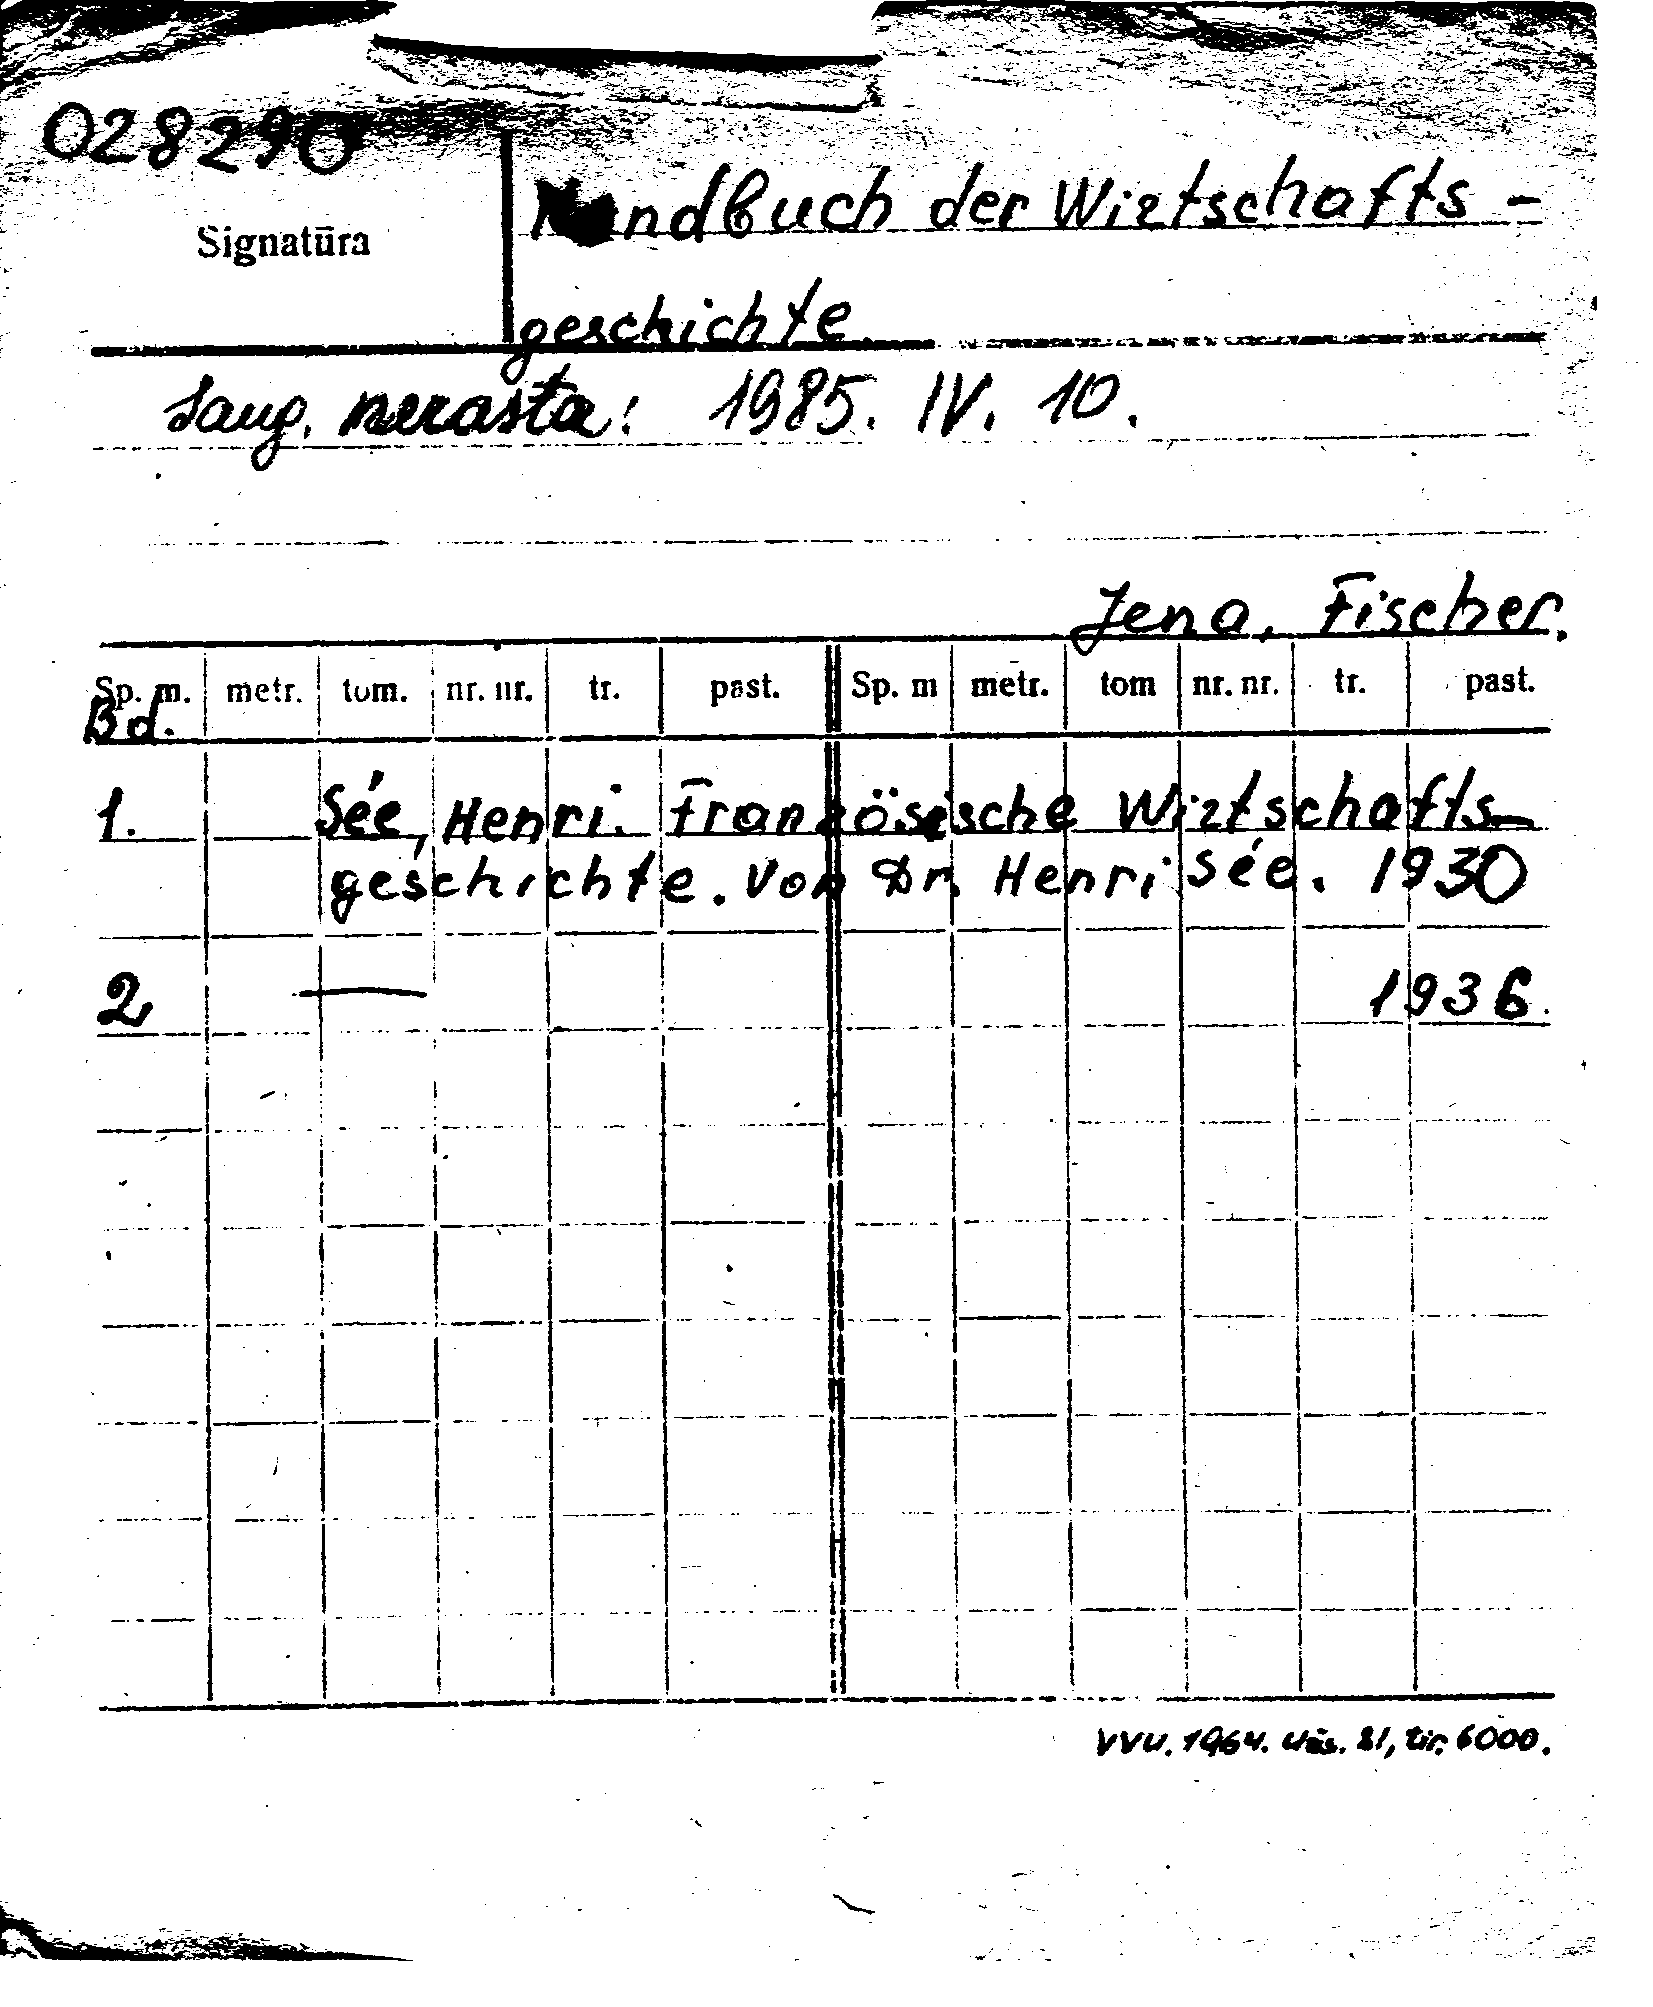 028290
Signatūra
Handbuch der Wirtschafts-
geschichte
Saug. nerasta! 1985. IV. 10.
Jena, Fischer.
Sp. m. metr. tom. nr. nr. tr. past. Sp. m metr. tom nr. nr. tr. past.
Bd.
1. Sée, Henri. Französische Wirtschafts-
geschichte. Von Dr. Henri Sée. 1930
2 — 1936.
VVU. 1964. Užs. 81, tir. 6000.